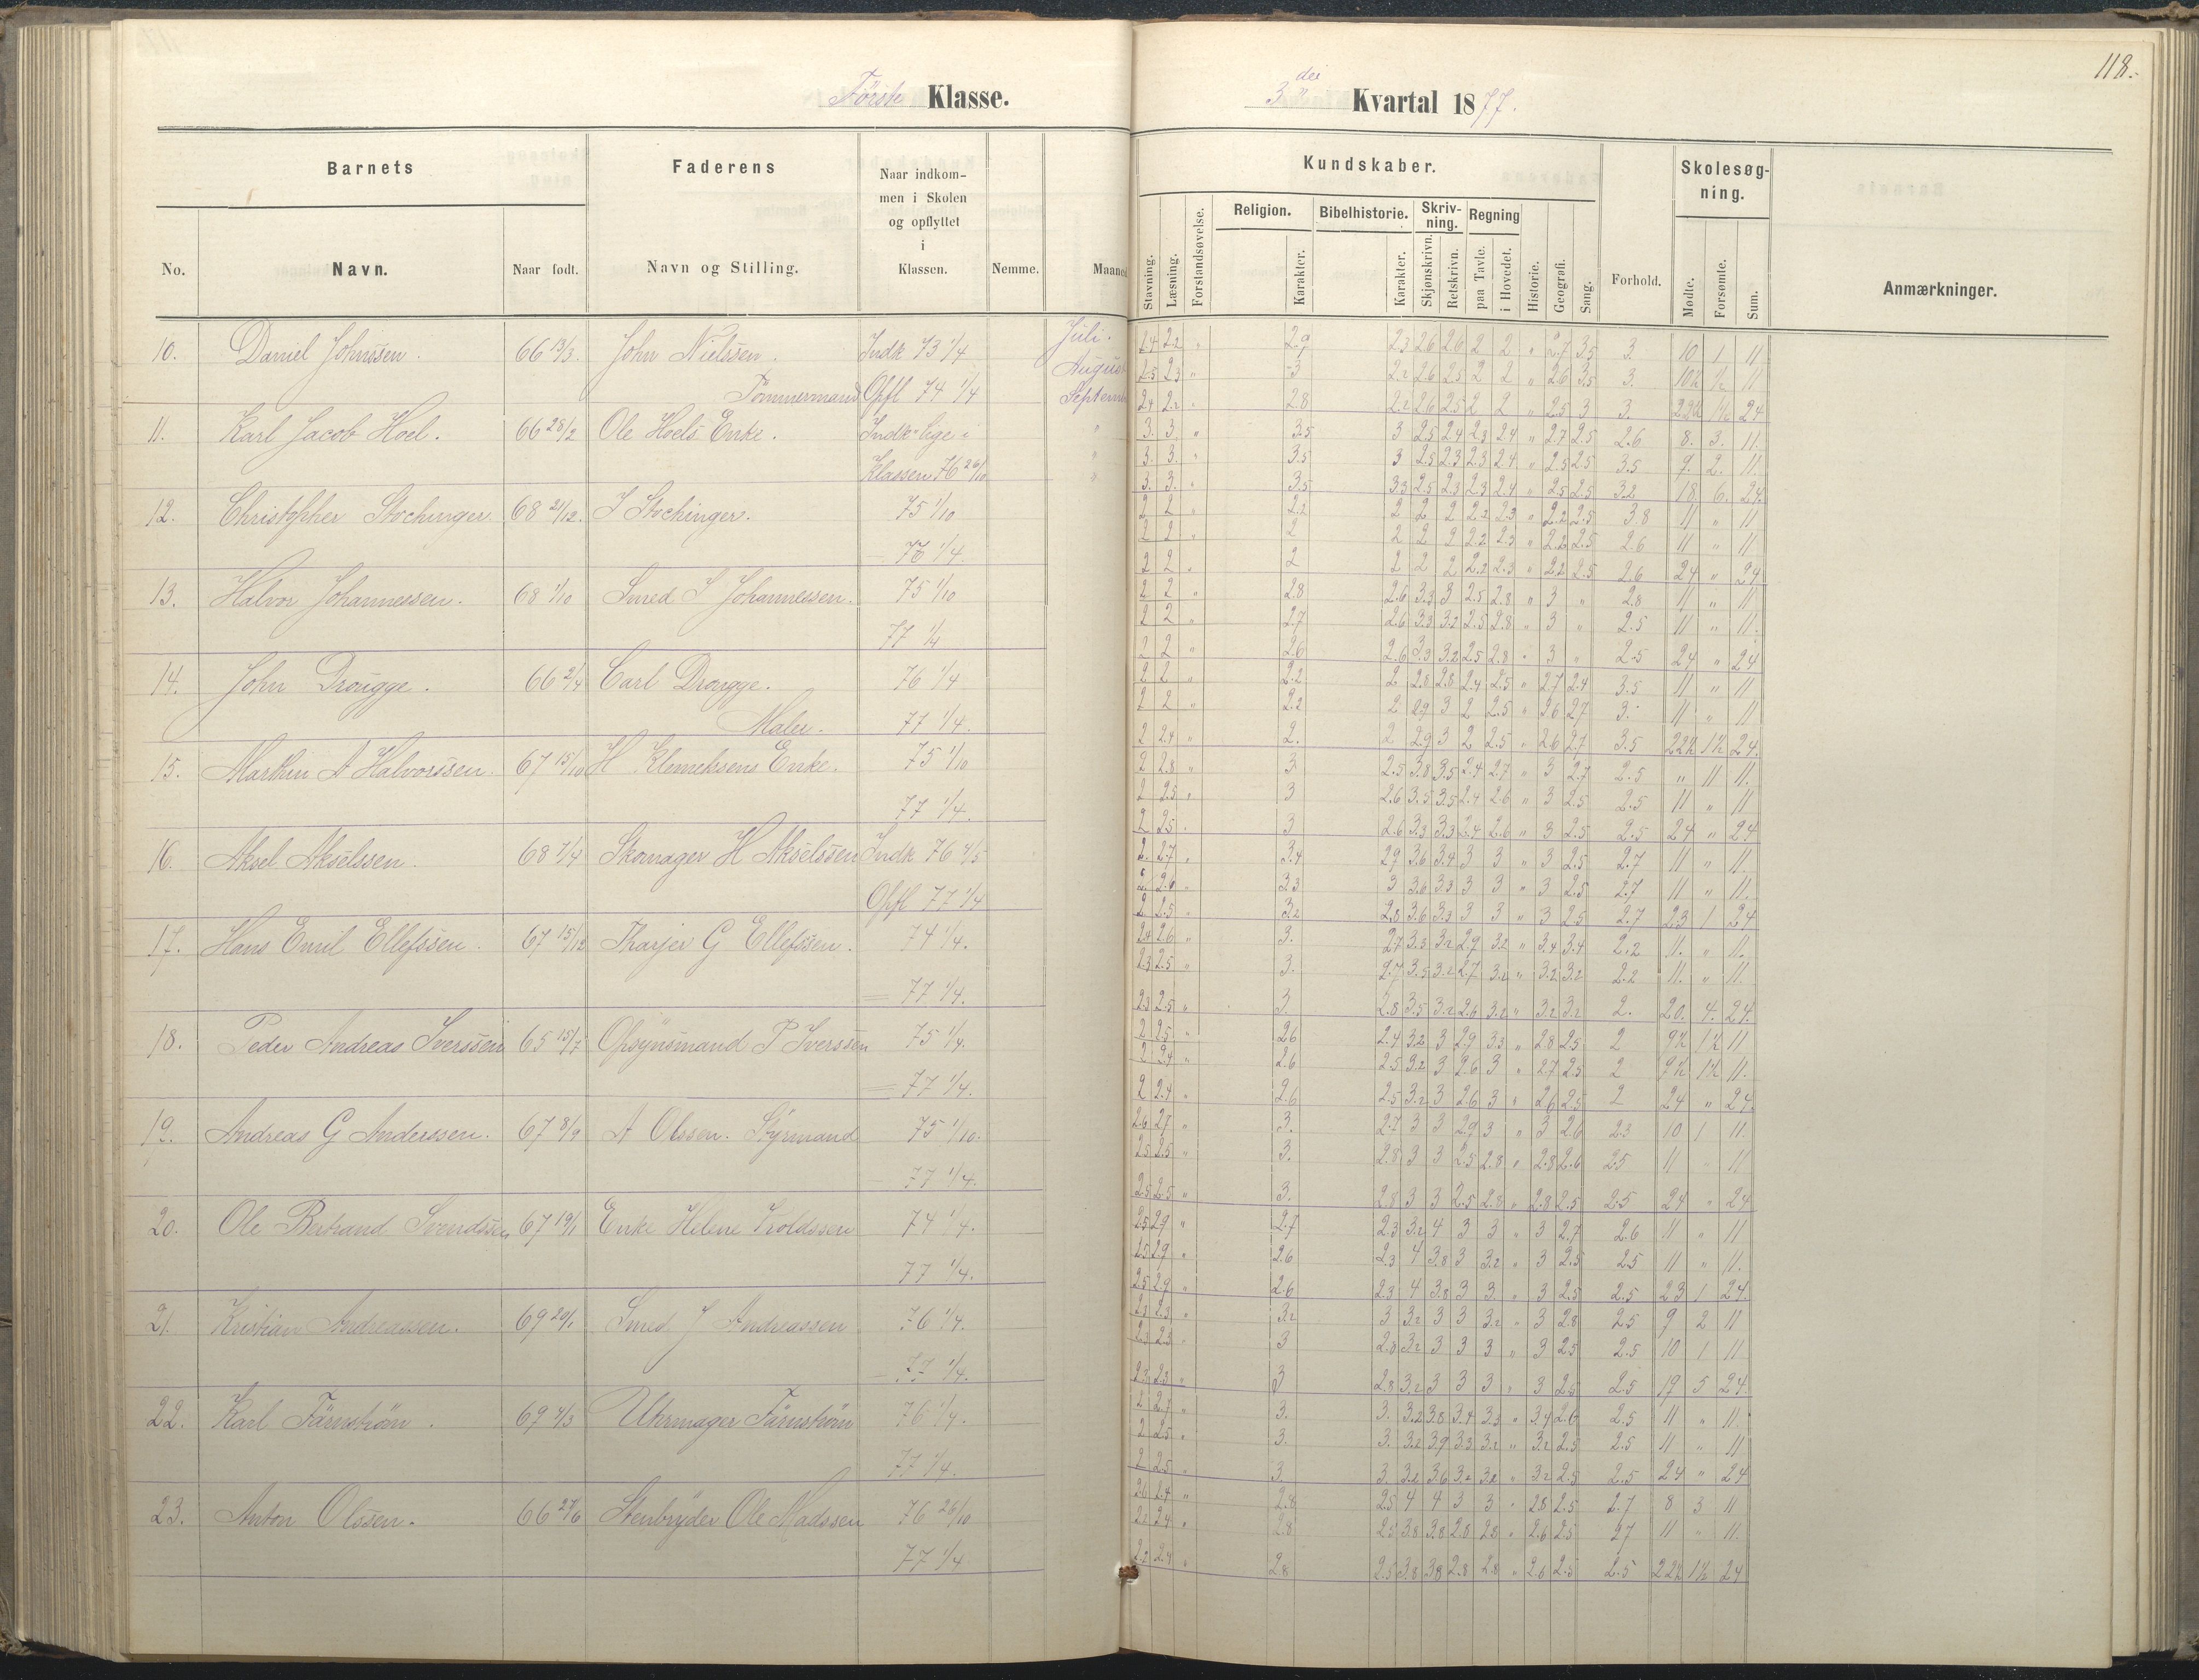 118.
Förste Klasse.
3die Kvartal 1877.
Barnets
Faderens
Naar indkom-
men i Skolen
og opflyttet
i
Klassen.
No.
Navn.
Naar født.
Navn og Stilling.
Nemme.
Maaned
Kundskaber.
Skolesøg-
ning.
Stavning.
Læsning.
Forstandsøvelse.
Religion.
Karakter.
Bibelhistorie.
Karakter.
Skriv-
ning.
Skjønskrivn.
Retskrivn.
Regning
paa Tavle.
i Hovedet.
Historie.
Geografi.
Sang.
Forhold.
Mødte.
Forsømte.
Sum.
Anmærkninger.
10. Daniel Johnssen. 66 13/3. John Nielssen. Indk 73 1/4 Juli. 2.9 2.3 2.6 2.6 2 2 " 2.7 3.5 3. 10 1 11
August 3 2.2 2.6 2.5 2 2 " 2.6 3.5 3. 10½ ½ 11
Tömmermand Opfl 74 1/4 Septemb 2.4 2.2 " 2.8 2.2 2.6 2.5 2 2 " 2.5 3 3. 22½ 1½ 24
11. Karl Jacob Hoel. 66 28/2 Ole Hoels Enke. Indk. lige i " 3. 3. " 3.5 3 2.5 2.4 2.3 2.4 " 2.7 2.5 2.6 8. 3. 11.
" 3. 3. " 3.5 3 2.5 2.3 2.3 2.4 " 2.5 2.5 3.5 9. 2. 11.
Klassen 76 26/10 " 3. 3. " 3.5 3.3 2.5 2.3 2.3 2.4 " 2.5 2.5 3.2 18. 6. 24.
12. Christopher Stochinger 68 21/12. I Stochinger. 75 1/10 2 2 " 2.2 2 2 2 2.2 2.3 " 2.2 2.5 3.8 11 " 11
2 2 " 2 2 2 2 2.2 2.3 " 2.2 2.5 2.6 11 " 11
76 1/4. 2 2 " 2 2 2 2 2.2 2.3 " 2.2 2.5 2.6 24 " 24
13. Halvor Johannessen. 68 1/10 Smed I Johannessen. 75 1/10 2 2 " 2.8 2.6 3.3 3 2.5 2.8 " 3 " 2.8 11 " 11
2 2 " 2.7 2.6 3.3 3.2 2.5 2.8 " 3 " 2.5 11 " 11.
77 1/4 2 2 " 2.6 2.6 3.3 3.2 2.5 2.8 " 3 " 2.5 24 " 24
14. John Drougge. 66 2/4 Carl Drougge. 76 1/4 2 2 " 2.2 2 2.8 2.8 2.4 2.5 " 2.7 2.4 3.5 11 " 11
2 2 " 2.2 2 2.9 3 2 2.5 " 2.6 2.7 3. 11 " 11
Maler. 77 1/4. 2 2.4 " 2. 2 2.9 3 2 2.5 " 2.6 2.7 3.5 22½ 1½ 24.
15. Marthin A Halvorssen. 67 15/10 H. Klemetsens Enke. 75 1/10 2 2.8 " 3 2.5 3.8 3.5 2.4 2.7 " 3 2.7 2.5 " 11 11.
2 2.5 " 3 2.6 3.5 3.5 2.4 2.6 " 3 2.5 2.5 11 " 11
77 1/4. 2 2.5 3 2.6 3.3 3.3 2.4 2.6 " 3 2.5 2.5 24 " 24
16. Aksel Akselssen. 68 7/4 Skomager H Akselssen Indk 76 4/5 2. 2.7 " 3.4 2.9 3.6 3.4 3 3 " 3 2.5 2.7 11 " 11.
2.6 " 3.3 3 3.6 3.3 3 3 " 3 2.5 2.7 11 " 11.
Opfl 77 1/4 2 2.5 " 3.2 2.8 3.6 3.3 3 3 " 3 2.5 2.7 23 1 24
17. Hans Emil Ellefssen. 67 15/12 Tharjer G Ellefssen. 74 1/4. 2.4 2.6 " 3. 2.7 3.3 3.2 2.9 3.2 " 3.4 3.4 2.2 11. " 11.
2.3 2.5 " 3. 2.7 3.5 3.2 2.7 3.2 " 3.2 3.2 2.2 11. " 11.
77 1/4. 2.3 2.5 " 3. 2.8 3.5 3.2 2.6 3.2 " 3.2 3.2 2. 20. 4. 24.
18. Peder Andreas Iverssen 65 15/7 Opsynsmand P Iverssen 75 1/4. 2 2.5 " 2.6 2.4 3.2 3 2.9 3.3 " 2.8 2.5 2 9½ 1½ 11
2 2.4 " 2.6 2.5 3.2 3 2.6 3 " 2.7 2.5 2 9½ 1½ 11.
77 1/4. 2 2.4 " 2.6 2.5 3.2 3 2.6 3 " 2.6 2.5 2 24 " 24.
19. Andreas G Anderssen. 67 8/9 A Olssen. Styrmand 75 1/10. 2.6 2.7 " 3. 2.7 3 3 2.9 3 " 3 2.6 2.3 10 1 11.
2.5 2.5 " 3. 2.8 3 3 2.5 2.8 " 2.8 2.6 2.5 11 " 11
77 1/4. 2.5 2.5 " 3. 2.8 3 3 2.5 2.8 " 2.8 2.5 2.5 24 " 24
20. Ole Bertrand Svendssen 67 19/1 Enke Helene Troldssen 74 1/4. 2.5 2.9 " 2.7 2.3 3.2 4 3 3 " 3 2.7 2.6 11 " 11
2.5 2.9 " 2.6 2.3 4 3.8 3 3.2 " 3 2.5 2.5 11 " 11.
77 1/4. 2.5 2.9 " 2.6 2.3 4 3.8 3 3. " 3 2.5 2.5 23 1 24
21. Kristian Andreassen. 69 20/1 Smed J Andreassen 76 1/4. 2.3 2.3 " 3.2 3 3.2 3 3 3.2 " 3 2.8 2.5 9 2 11
2.3 2.3 " 3 2.8 3.2 3 3 3 " 3 2.5 2.5 10 1 11
77 1/4. 2.3 2.3 " 3 2.8 3.2 3 3 3 " 3 2.5 2.5 19 5 24.
22. Karl Färnström. 69 4/3 Uhrmager Färnström 76 1/4. 2 2.7 " 3. 3. 3.2 3.8 3.4 3.3 " 3.4 2.6 2.5 11 " 11.
2 2.5 " 3. 3. 3.2 3.9 3.3 3.2 " 3.2 2.5 2.5 11 " 11
77 1/4. 2 2.5 " 3. 3. 3.2 3.6 3.2 3.2 " 3.2 2.5 2.5 24 " 24
23. Anton Olssen. 66 27/6 Stenbryder Ole Madssen 76 26/10 2.4 " 2.8 2.5 4 4 3 3 " 2.8 2.5 2.7 8 3 11
2.4 " 2.8 2.5 3.8 3.8 2.8 2.8 " 2.6 2.5 27 11 " 11.
77 1/4 2.2 2.4 " 2.8 2.5 3.8 3.8 2.8 2.8 " 2.6 2.5 2.5 22½ 1½ 24